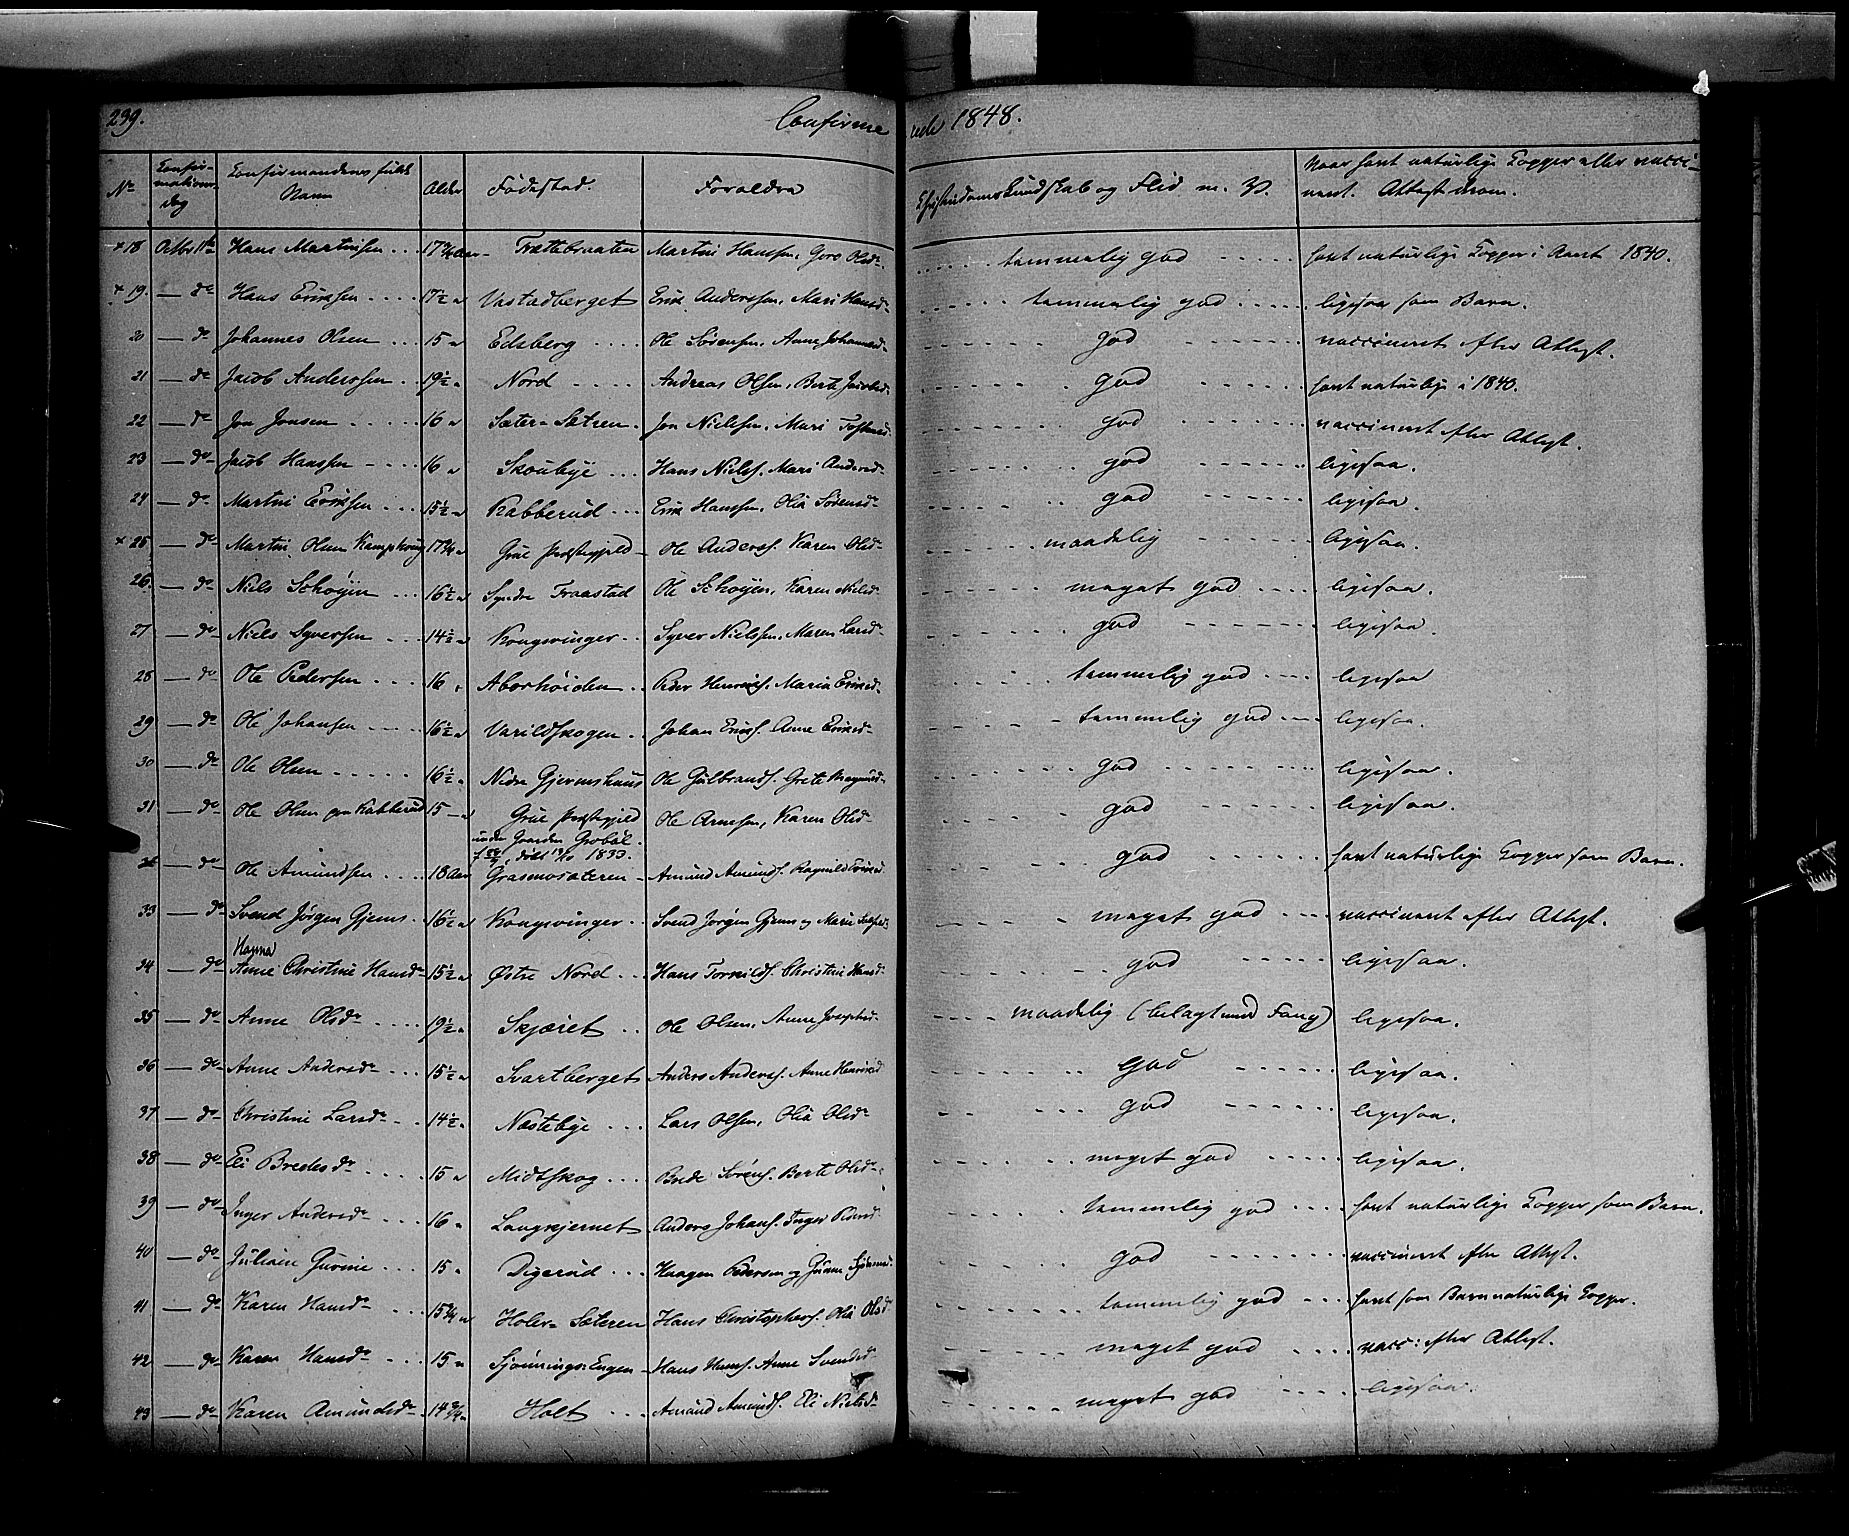 239. Confirme rede 1848.
No Confirmations dag Confirmandens fulde Navn Alder Fødested. Forældre Christendoms Kundskab og Flid m. V. Naar havt naturlige Kopper eller vaccineret. Attest derom.
+ 18 Octbr 11te Hans Martinsen 17 3/4 Aar Trættebraaten Martin Hanssen, Gore Olsdr. temmelig god havt naturlige Kopper i Aaret 1840.
+ 19. — do Hans Erikssen 17 1/2 " Vastadberget Erik Anderssen, Mari Hansd. temmelig god ligesaa som Barn.
20 — do Johannes Olsen 15 " Edsberg Ole Sörensen, Anne Johannesd. god vaccineret efter Attest.
21 — do Jacob Anderssen 19 1/2 " Nord Andreas Olsen, Berte Jacobsd. god havt naturlige i 1840.
22 — do Jon Jonsen 16 " Sæter-Sætren Jon Nielssen, Mari god vaccineret efter Attest.
23 — do Jacob Hanssen 16 " Skoubye Hans Nielss. Mari Andersd. god ligesaa.
24 — do Martin Erikssen 15 1/2 " Kabberud Erik Hanssen, Olia Sörensd. god ligesaa.
+ 25 — do Martin Olsen 17 3/4 " Grue Præstegjeld Ole Anderss. Karen Olsd. maadelig ligesaa.
26 — do Niels Schøyen 16 1/2 " Syndre Fraastad Ole Schøyen, Karen Nielsd. meget god ligesaa.
27 — do Niels Syverssen 14 1/2 " Kongsvinger Syver Nielssen, Maren Larsd. god ligesaa.
28 — do Ole Pedersen 16 " Aborhöiden Peder Henriks. Maria Eriksd. temmelig god ligesaa
29 — do Ole Johansen 16 1/2 " Varildskogen Johan Eriks. Anne Eriksd. temmelig god ligesaa.
30 — do Ole Olsen 16 1/2 " Nedre Gjermshuus Ole Gulbrands. Grete Magnusd. god ligesaa.
31 — do Ole Olsen paa Kabberud 15 — " Grue Præstegjeld Ole Arnesen, Karen Olsd. god ligesaa.
under Gaarden Grobøl.
döbt 13/10 1833.
32 — do Ole Amundsen 18 Aar Grasmosæteren Amund Amunds. Ragnild Eriksd. god havt naturlige Kopper som Barn.
33 — do Svend Jörgen Gjems 16 1/2 " Kongsvinger Svend Jörgen Gjems og Marie meget god vaccineret efter Attest.
34 — do Hanna Anne Christine Hansdr 15 1/2 " Østre Nord Hans Torkilds. Christine Hansd. god ligesaa.
35 — do Anne Olsdr 19 1/2 " Skjæret Ole Olsen, Anne Josephsd. maadelig (belagt med Fang) ligesaa.
36 — do Anne Andersdr 15 1/2 " Svartberget Anders Anderss. Anne Henriksd. god ligesaa.
37 — do Christine Larsdr 14 1/2 " Næstebye Lars Olsen, Olia Olsdr god ligesaa.
38 — do Eli Bredesdr 15 " Midtskog Brede Sörens. Berte Olsdr meget god ligesaa.
39 — do Inger Andersdr 16 " Langkjernet Anders Johans. Inger temmelig god havt naturlige Kopper som Barn.
40 — do Juliane Gurine 15 " Digerud Haagen Pedersen og god vaccineret efter Attest.
41 — do Karen Hansdr 15 3/4 " Holer-Sæteren Hans Christophers. Olia Olsdr temmelig god havt som Barn naturlige Kopper.
42 — do Karen Hansdr 15 " Sjönnings-Engen Hans Hans. Anne Svendsd. meget god vacc: efter Attest.
43 — do Karen Amundsdr 14 3/4 " Holt Amund Amunds. Eli Nielsdr meget god ligesaa.